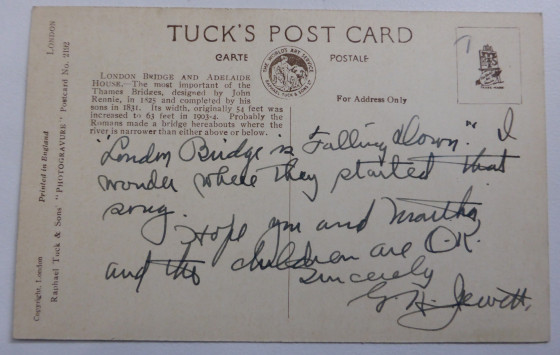 TUCK'S POST CARD
CARTE POSTALE
LONDON BRIDGE AND ADELAIDE
HOUSE.—The most important of the
Thames Bridges, designed by John
Rennie, in 1825 and completed by his
sons in 1831. Its width, originally 54 feet was
increased to 63 feet in 1903-4. Probably the
Romans made a bridge hereabouts where the
river is narrower than either above or below.
For Address Only
"London Bridge is Falling down." I
wonder where they started that
song.
Hope you and Martha
and the children are O.K.
Sincerely
G. H. Jewett.
LONDON
Raphael Tuck & Sons' "PHOTOGRAVURE" Postcard No. 2192
Printed in England
Copyright, London